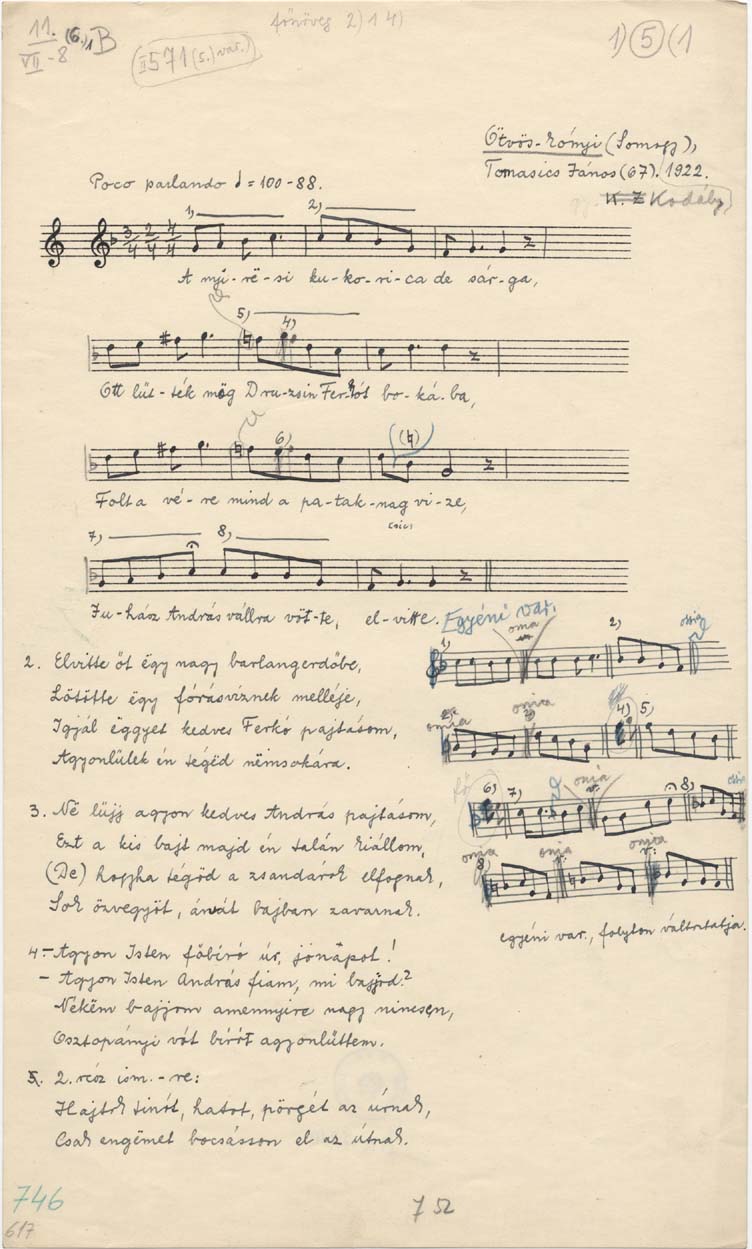 11.
VII-8
(6.), B
főszöveg 2) 1 4)
II 571 (5.) var.
1) 5 (1
Ötvös-Kónyi (Somogy),
Tomasics János (67). 1922.
K. Z Kodály
Poco parlando ♩ = 100-88.
1) 2)
A nyi-rë-si ku-ko-ri-ca de sár-ga,
5) 4)
Ott lüt-ték mög Dru-zsin Ferkót bo-ká-ba,
6)
Folt a vé-re mind a pa-tak-nag vi-ze,
7) 8)
Ju-hász András vállra vöt-te, el-vitte. Egyéni var.
1) 2)
2. Elvitte őt ëgy nagy barlangerdőbe,
Lötötte ëgy fórásvíznek melléje,
Igyál ëggyet kedves Ferkó pajtásom,
Agyonlülek én tégëd nëmsokára.
4) 5)
3. Në lüjj agyon kedves András pajtásom,
Ezt a kis bajt majd én talán kiállom,
(De) hogyha tégöd a zsandárok elfognak,
Sok özvegyöt, árvát bajban zavarnak.
6) 7) 8)
egyéni var., folyton változtatja.
4. - Agyon Isten főbíró úr, jónapot!
- Agyon Isten András fiam, mi bajjod?
Nékëm bajjom amennyire nagy nincsen,
Osztopányi vót bírót agyonlüttem.
5. 2. rész ism.-re:
Hajtok tinót, hatot, pörgét az úrnak,
Csak engëmet bocsásson el az útnak.
746
617
752